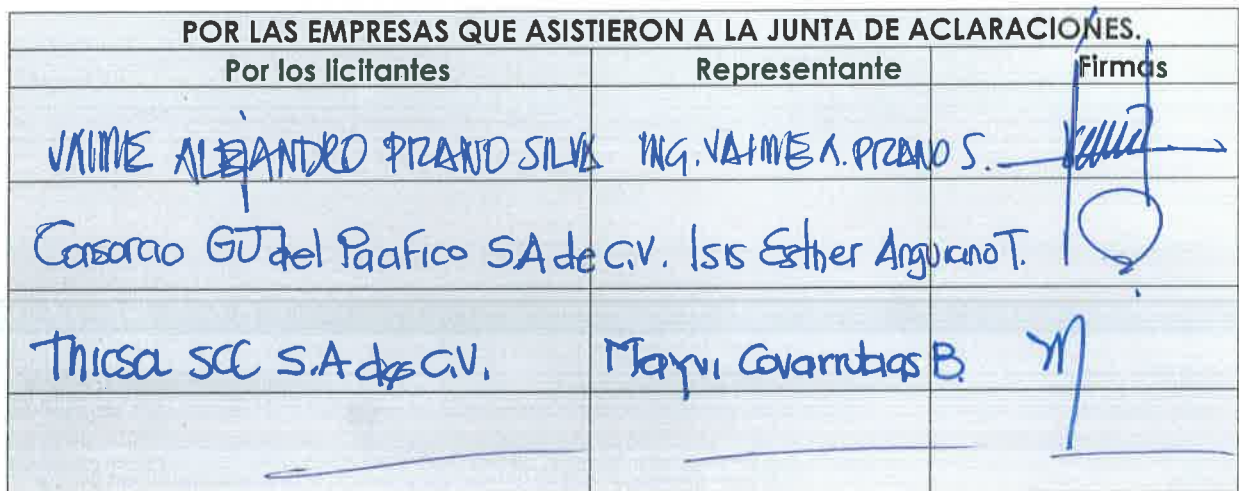 POR LAS EMPRESAS QUE ASISTIERON A LA JUNTA DE ACLARACIONES.
Por los licitantes Representante Firmas
JAIME ALEJANDRO PIZANO SILVA ING. JAIME A. PIZANO S.
Consorcio GJ del Pacifico S.A de C.V. Isis Esther Anguiano T.
Thicsa SCC S.A de C.V. Mayvi Covarrubias B.